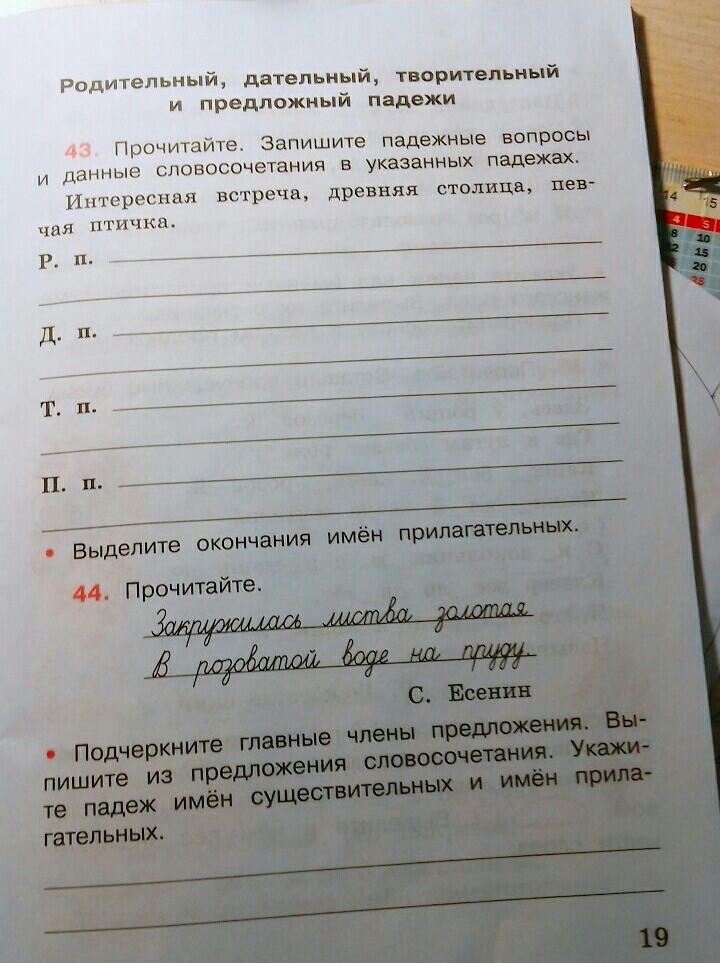 Родительный, дательный, творительный
и предложный падежи
43. Прочитайте. Запишите падежные вопросы
и данные словосочетания в указанных падежах.
Интересная встреча, древняя столица, пев-
чая птичка.
Р. п.
Д. п.
Т. п.
П. п.
• Выделите окончания имён прилагательных.
44. Прочитайте.
Закружилась листва золотая
В розоватой воде на пруду.
С. Есенин
• Подчеркните главные члены предложения. Вы-
пишите из предложения словосочетания. Укажи-
те падеж имён существительных и имён прила-
гательных.
19
14 15
4 5
8 10
12 15
20
25